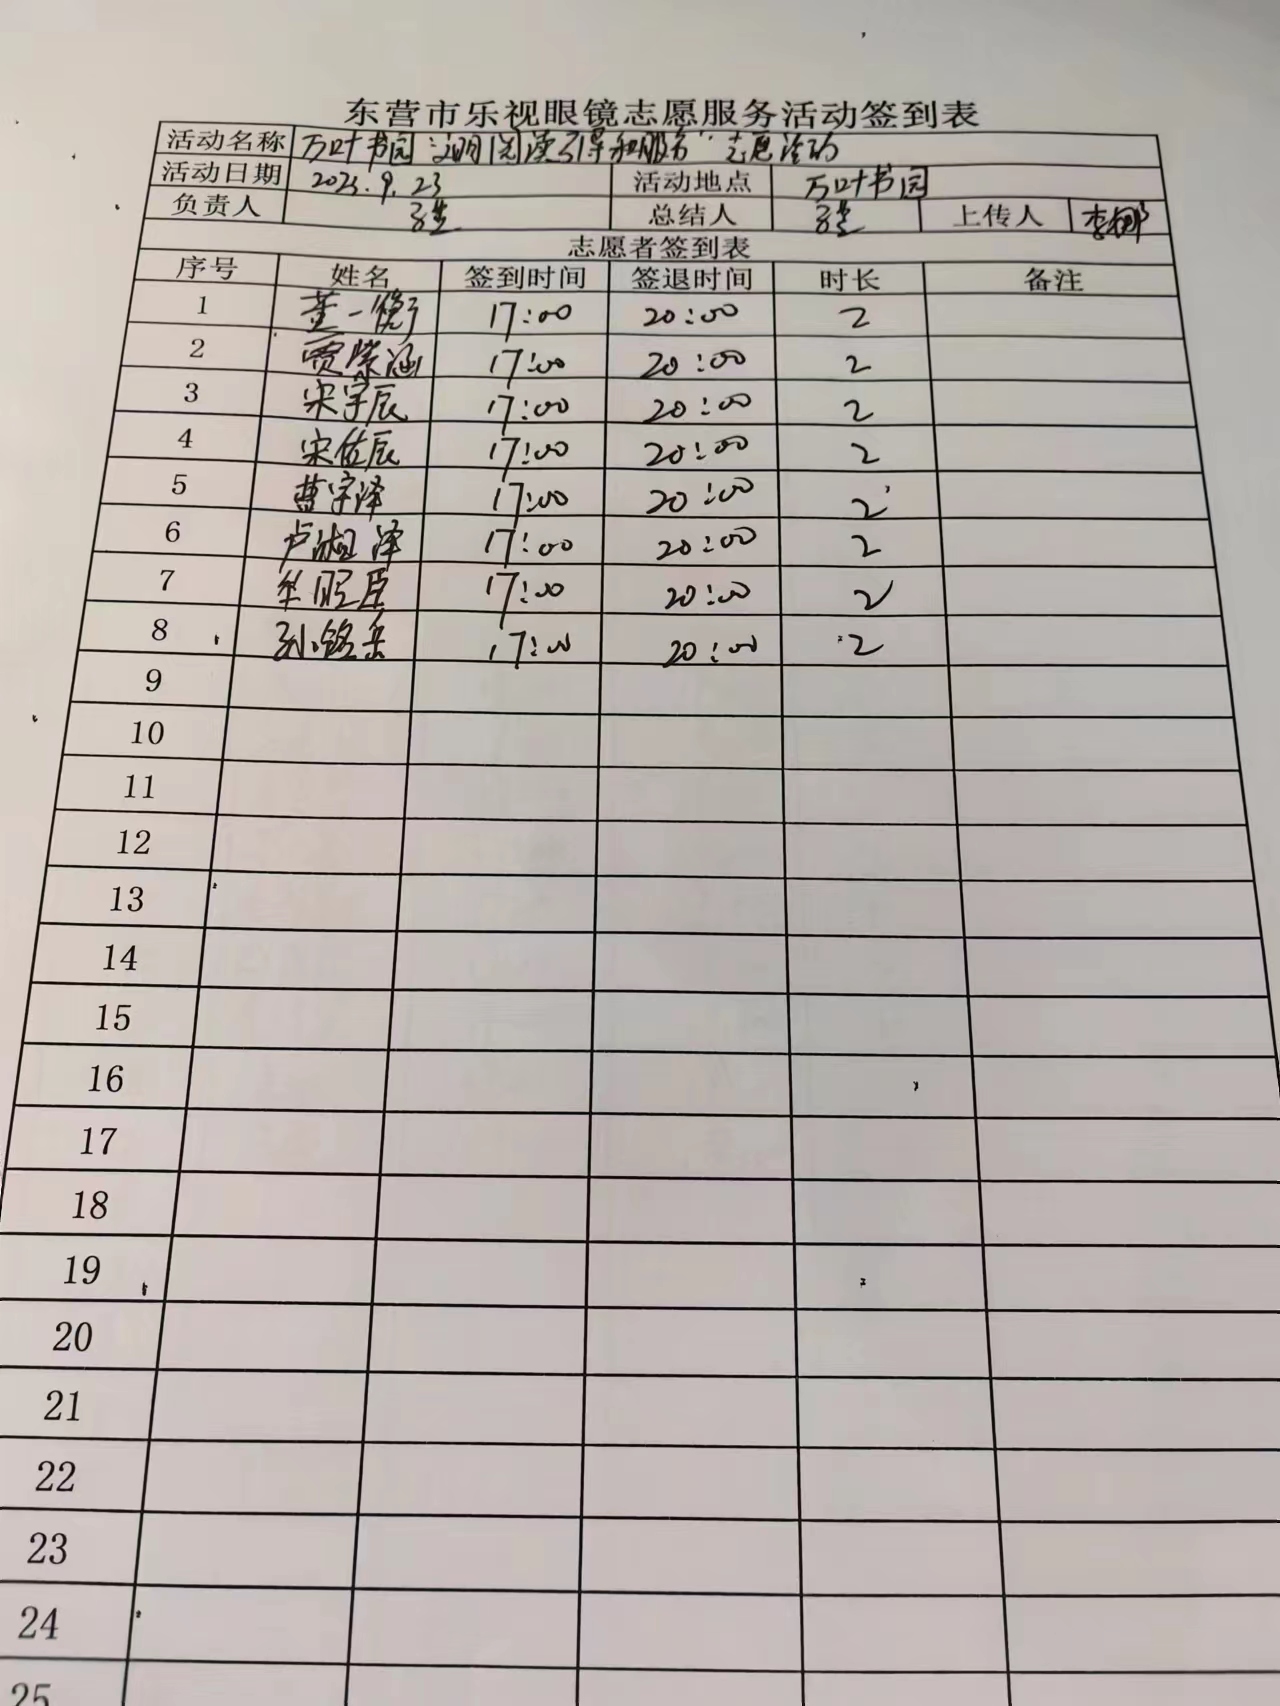 东营市乐视眼镜志愿服务活动签到表
活动名称 万叶书园“文明阅读引导和服务”志愿活动
活动日期 2023.9.23 活动地点 万叶书园
负责人 总结人 上传人 李娜
志愿者签到表
序号 姓名 签到时间 签退时间 时长 备注
1 董一衡 17:00 20:00 2
2 贾荣涵 17:00 20:00 2
3 宋宇辰 17:00 20:00 2
4 宋佐辰 17:00 20:00 2
5 曹宇泽 17:00 20:00 2
6 卢淑泽 17:00 20:00 2
7 17:00 20:00 2
8 孙铭岳 17:00 20:00 2
9
10
11
12
13
14
15
16
17
18
19
20
21
22
23
24
25